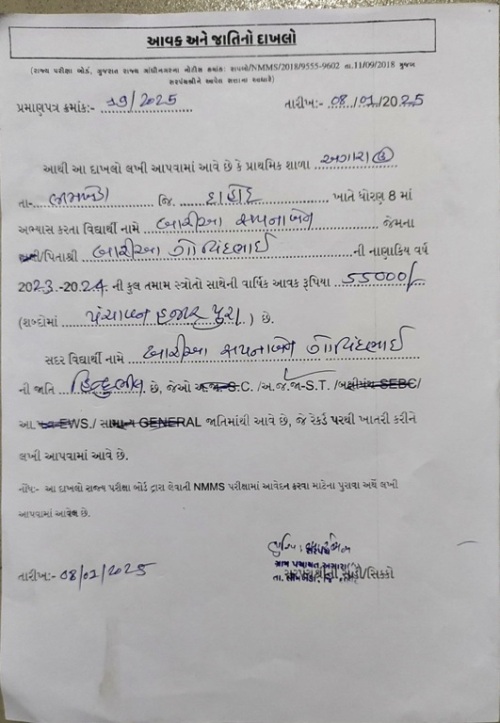 આવક અને જાતિનો દાખલો
(રાજ્ય પરીક્ષા બોર્ડ, ગુજરાત રાજ્ય ગાંધીનગરના નોટીસ ક્રમાંક: રાપબો/NMMS/2018/9555-9602 તા.11/09/2018 મુજબ
સરપંચશ્રીને આપેલ સત્તાના આધારે)
પ્રમાણપત્ર ક્રમાંક:- 19/2025 તારીખ:- 08/01/2025
આથી આ દાખલો લખી આપવામાં આવે છે કે પ્રાથમિક શાળા અગારા
તા- જિ. દાહોદ ખાતે ધોરણ 8 માં
અભ્યાસ કરતા વિદ્યાર્થી નામે બારીઆ સપનાબેન જેમના
/પિતાશ્રી બારીઆ ગોવિંદભાઈ ની નાણાકિય વર્ષ
2023-2024 ની કુલ તમામ સ્ત્રોતો સાથેની વાર્ષિક આવક રૂપિયા 55000/-
(શબ્દોમાં પંચાવન હજાર પુરા) છે.
સદર વિદ્યાર્થી નામે બારીઆ સપનાબેન ગોવિંદભાઈ
ની જાતિ હિન્દુભીલ છે, જેઓ અ.જા-S.C. /અ.જ.જા-S.T. /બક્ષીપંચ SEBC/
આ. EWS./ સામાન્ય GENERAL જાતિમાંથી આવે છે, જે રેકર્ડ પરથી ખાતરી કરીને
લખી આપવામાં આવે છે.
નોંધ:- આ દાખલો રાજ્ય પરીક્ષા બોર્ડ દ્વારા લેવાતી NMMS પરીક્ષામાં આવેદન કરવા માટેના પુરાવા અર્થે લખી
આપવામાં આવેલ છે.
તારીખ:- 08/01/2025
સરપંચ
ગ્રામ પંચાયત અગારા
સરપંચશ્રીની સહી/સિક્કો